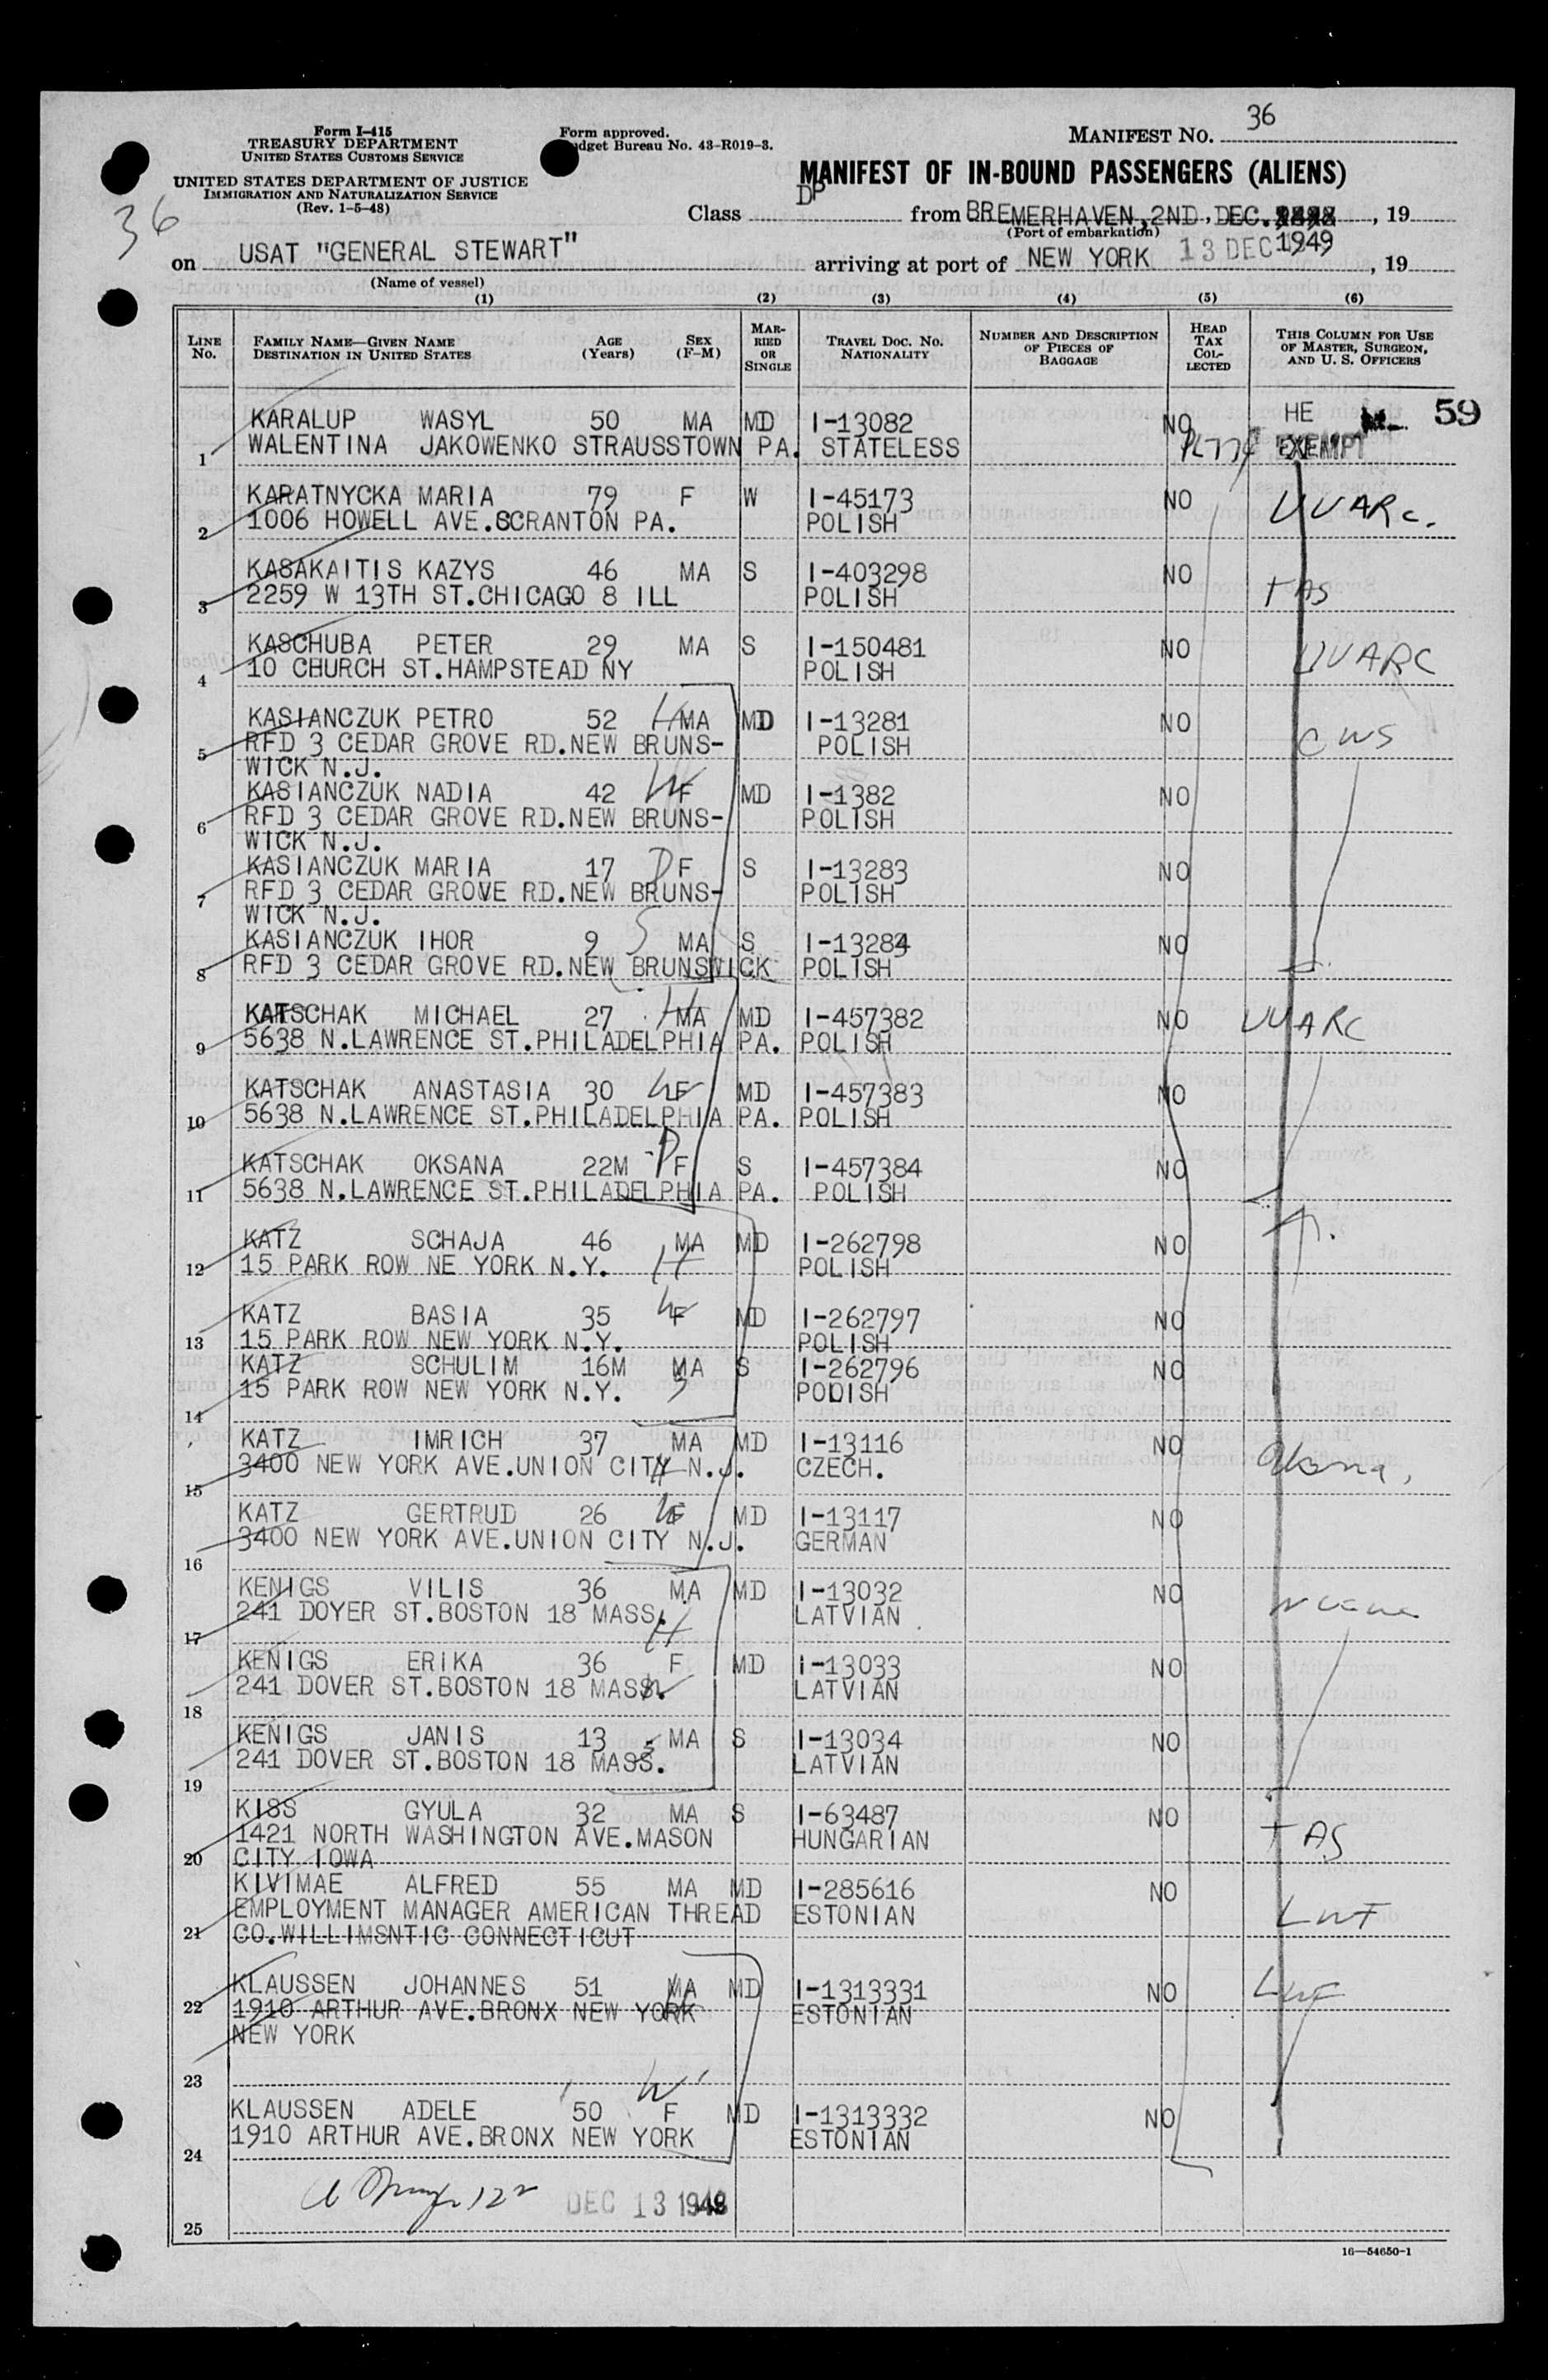 Form I-415
TREASURY DEPARTMENT
UNITED STATES CUSTOMS SERVICE
UNITED STATES DEPARTMENT OF JUSTICE
IMMIGRATION AND NATURALIZATION SERVICE
(Rev. 1-5-48)
36
Form approved.
dget Bureau No. 43-R019-3.
MANIFEST NO. 36
MANIFEST OF IN-BOUND PASSENGERS (ALIENS)
Class DP from BREMERHAVEN, 2ND, DEC. , 19
(Port of embarkation)
on USAT "GENERAL STEWART" arriving at port of NEW YORK 13 DEC 1949, 19
(Name of vessel)
(1) (2) (3) (4) (5) (6)
LINE No. FAMILY NAME—GIVEN NAME DESTINATION IN UNITED STATES AGE (Years) SEX (F-M) MARRIED OR SINGLE TRAVEL DOC. NO. NATIONALITY NUMBER AND DESCRIPTION OF PIECES OF BAGGAGE HEAD TAX COLLECTED THIS COLUMN FOR USE OF MASTER, SURGEON, AND U. S. OFFICERS
KARALUP WASYL 50 MA MD I-13082 NO HE 59
1 WALENTINA JAKOWENKO STRAUSSTOWN PA. STATELESS EXEMPT
KARATNYCKA MARIA 79 F W I-45173 NO UUARC.
2 1006 HOWELL AVE.SCRANTON PA. POLISH
KASAKAITIS KAZYS 46 MA S I-403298 NO
3 2259 W 13TH ST.CHICAGO 8 ILL POLISH TAS
KASCHUBA PETER 29 MA S I-150481 NO UUARC
4 10 CHURCH ST.HAMPSTEAD NY POLISH
KASIANCZUK PETRO 52 H MA MD I-13281 NO CWS
5 RFD 3 CEDAR GROVE RD.NEW BRUNS- POLISH
WICK N.J.
KASIANCZUK NADIA 42 W F MD I-1382 NO
6 RFD 3 CEDAR GROVE RD.NEW BRUNS- POLISH
WICK N.J.
KASIANCZUK MARIA 17 D F S I-13283 NO
7 RFD 3 CEDAR GROVE RD.NEW BRUNS- POLISH
WICK N.J.
KASIANCZUK IHOR 9 S MA S I-13284 NO
8 RFD 3 CEDAR GROVE RD.NEW BRUNSWICK POLISH
KATSCHAK MICHAEL 27 H MA MD I-457382 NO UUARC
9 5638 N.LAWRENCE ST.PHILADELPHIA PA. POLISH
KATSCHAK ANASTASIA 30 W F MD I-457383 NO
10 5638 N.LAWRENCE ST.PHILADELPHIA PA. POLISH
KATSCHAK OKSANA 22M D F S I-457384 NO
11 5638 N.LAWRENCE ST.PHILADELPHIA PA. POLISH
KATZ SCHAJA 46 MA MD I-262798 NO
12 15 PARK ROW NE YORK N.Y. H POLISH
KATZ BASIA 35 W F MD I-262797 NO
13 15 PARK ROW NEW YORK N.Y. POLISH
KATZ SCHULIM 16M MA S I-262796 NO
14 15 PARK ROW NEW YORK N.Y. S PODISH
KATZ IMRICH 37 MA MD I-13116 NO
15 3400 NEW YORK AVE.UNION CITY N.J. H CZECH.
KATZ GERTRUD 26 W F MD I-13117 NO
16 3400 NEW YORK AVE.UNION CITY N.J. GERMAN
KENIGS VILIS 36 MA MD I-13032 NO
17 241 DOYER ST.BOSTON 18 MASS. H LATVIAN
KENIGS ERIKA 36 F MD I-13033 NO
18 241 DOVER ST.BOSTON 18 MASS. W LATVIAN
KENIGS JANIS 13 S MA S I-13034 NO
19 241 DOVER ST.BOSTON 18 MASS. LATVIAN
KISS GYULA 32 MA S I-63487 NO TAS
20 1421 NORTH WASHINGTON AVE.MASON HUNGARIAN
CITY IOWA
KIVIMAE ALFRED 55 MA MD I-285616 NO
21 EMPLOYMENT MANAGER AMERICAN THREAD ESTONIAN LWF
CO.WILLIMSNTIC CONNECTICUT
KLAUSSEN JOHANNES 51 MA MD I-1313331 NO LWF
22 1910 ARTHUR AVE.BRONX NEW YORK H ESTONIAN
NEW YORK
23
KLAUSSEN ADELE 50 W F MD I-1313332 NO
24 1910 ARTHUR AVE.BRONX NEW YORK ESTONIAN
DEC 13 1949
25
16—54650-1